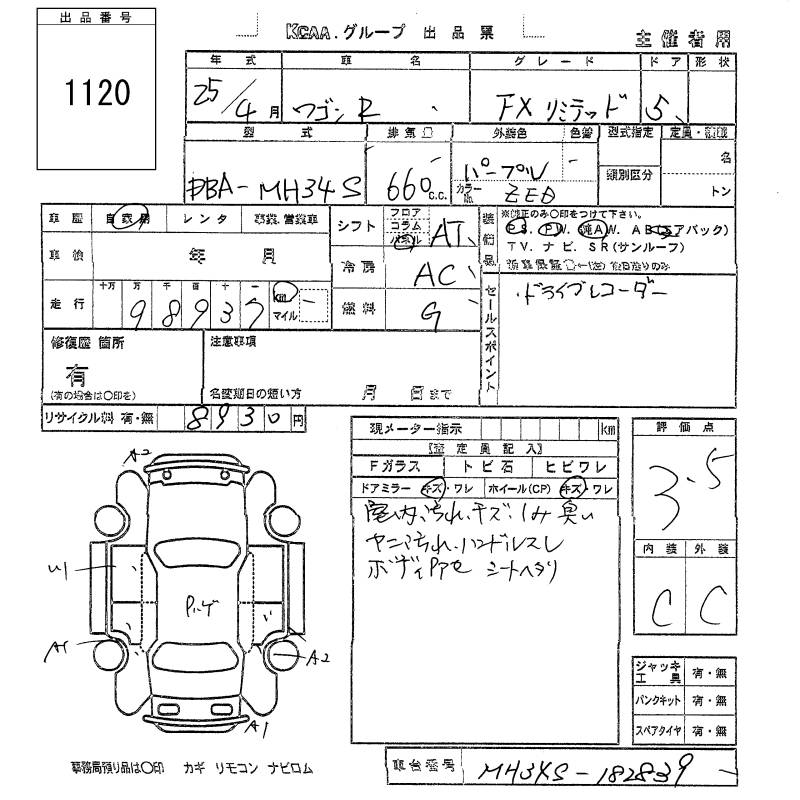 出品番号
1120
KCAA.グループ 出品票
主催者用
年式 車名 グレード ドア 形状
25/4月 ワゴンR FXリミテッド 5
型式 排気量 外装色 色替 型式指定 定員・積載
DBA-MH34S 660c.c. パープル
類別区分
名
カラーNo. ZE0
トン
車歴 自家用 レンタ 事業.営業車
シフト フロア コラム パネル AT
装備品
※純正のみ○印をつけて下さい。
PS. PW. 純AW. AB(エアバック)
TV. ナビ. SR(サンルーフ)
車検 年 月
冷房 AC
走行 十万 万 千 百 十 一
98937 km マイル
燃料 G
セールスポイント
・ドライブレコーダー
修復歴 箇所
有
(有の場合は○印を)
注意事項
名変期日の短い方 月 日まで
リサイクル料 有・無 8930円
現メーター指示 km
【査定員記入】
Fガラス トビ石 ヒビワレ
ドアミラー キズ・ワレ ホイール(CP) キズ・ワレ
室内汚れ.キズ.シミ 臭い
ヤニ汚れ.ハンドルスレ
ボディ シートヘタリ
評価点
3.5
内装 外装
C C
A2
U1
A1
A2
A1
ジャッキ工具 有・無
パンクキット 有・無
スペアタイヤ 有・無
事務局預り品は○印 カギ リモコン ナビロム
車台番号 MH34S-182839